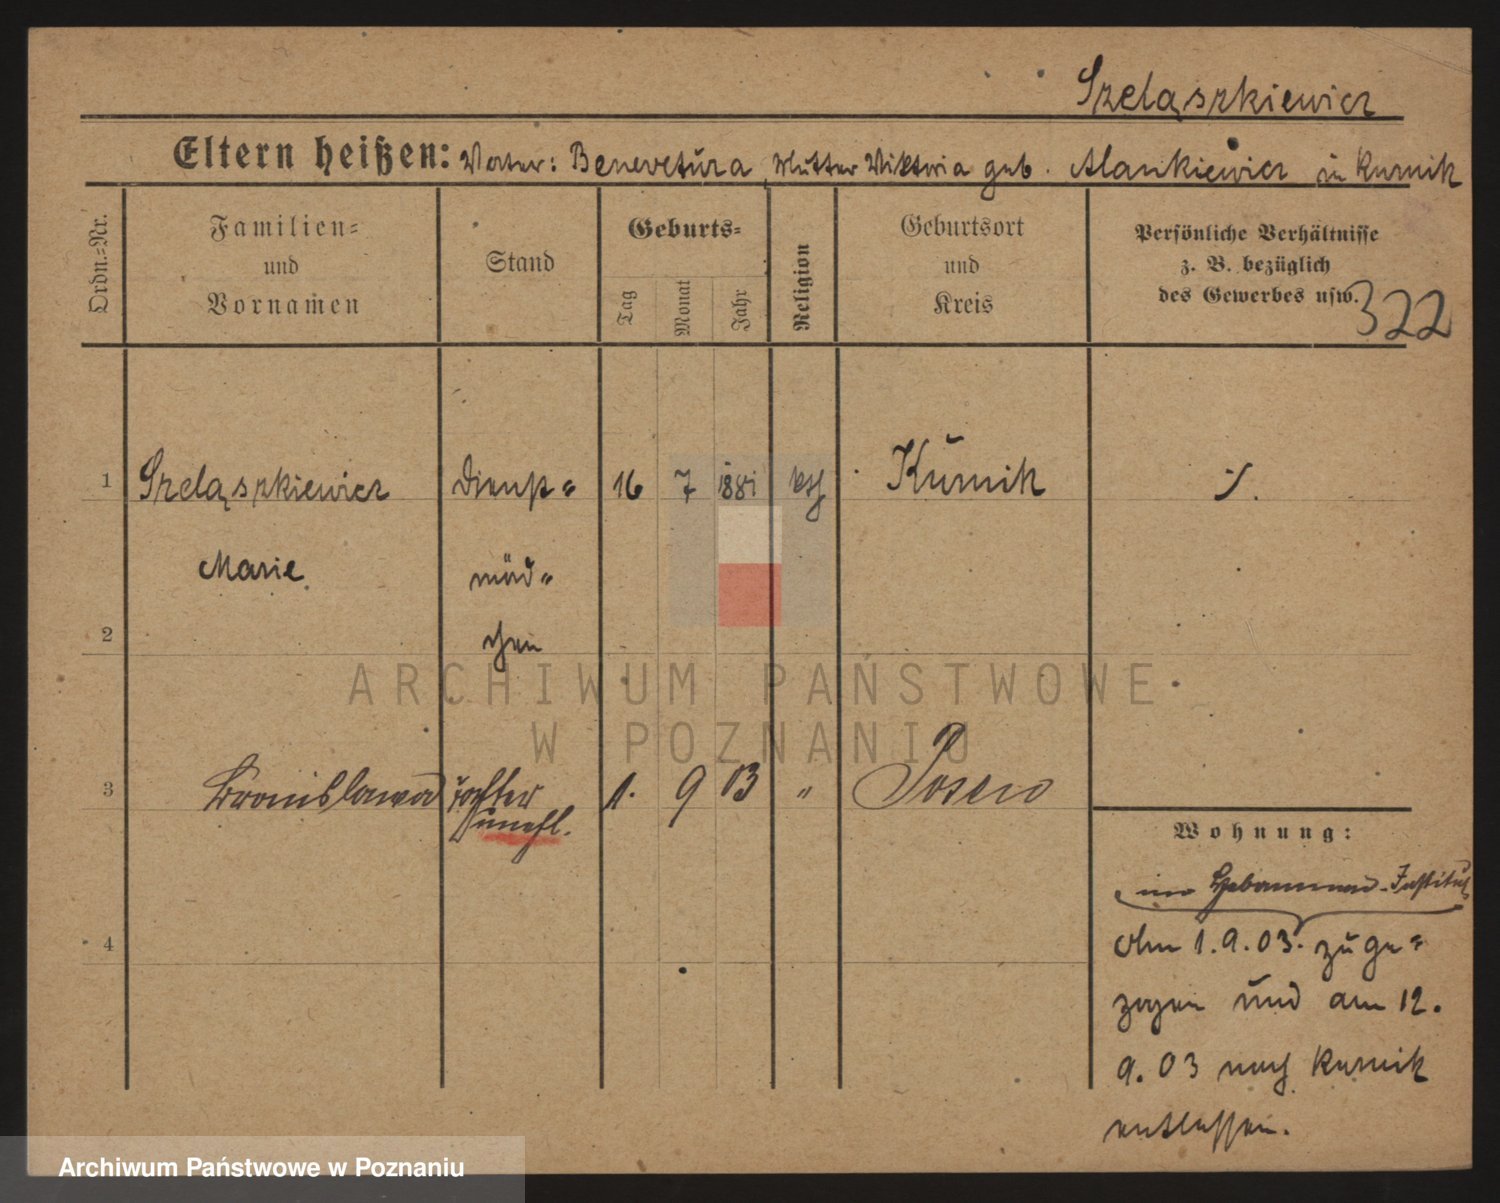 Szeląszkiewicz
Eltern heißen: Vater: Benevetura, Mutter Viktoria geb. Alankiewicz in Kurnik
Ordn.=Nr.
Familien=
und
Vornamen
Stand
Geburts=
Tag
Monat
Jahr
Religion
Geburtsort
und
Kreis
Persönliche Verhältnisse
z. B. bezüglich
des Gewerbes usw.
322
1 Szeląszkiewicz Dienst= 16 7 1881 kth Kurnik ./.
Marie mäd=
2 chen
ARCHIWUM PAŃSTWOWE
W POZNANIU
3 Bronislawa Tochter 1. 9 03 " Posen
unehl.
Wohnung:
im Hebammen-Institut
4
Am 1.9.03. zuge=
zogen und am 12.
9.03 nach Kurnik
entlassen.
Archiwum Państwowe w Poznaniu